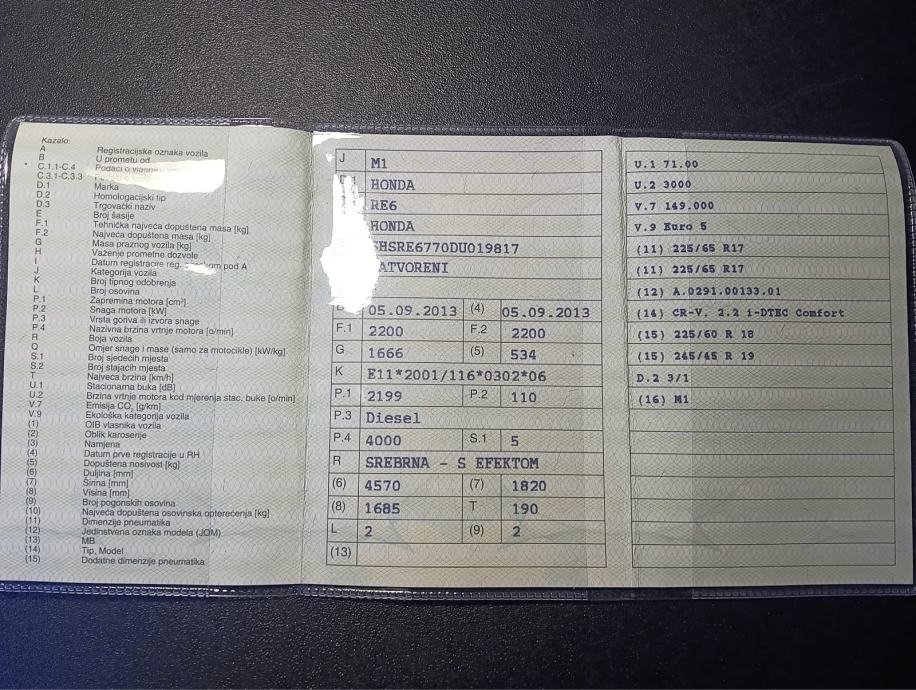 Kazalo:
A Registracijska oznaka vozila
B U prometu od
C.1.1-C.4 Podaci o
C.3.1-C.3.3
D.1 Marka
D.2 Homologacijski tip
D.3 Trgovački naziv
E Broj šasije
F.1 Tehnička najveća dopuštena masa [kg]
F.2 Najveća dopuštena masa [kg]
G Masa praznog vozila [kg]
H Važenje prometne dozvole
I Datum registracije reg. pod A
J Kategorija vozila
K Broj tipnog odobrenja
L Broj osovina
P.1 Zapremina motora [cm³]
P.2 Snaga motora [kW]
P.3 Vrsta goriva ili izvora snage
P.4 Nazivna brzina vrtnje motora [o/min]
R Boja vozila
Q Omjer snage i mase (samo za motocikle) [kW/kg]
S.1 Broj sjedećih mjesta
S.2 Broj stajaćih mjesta
T Najveća brzina [km/h]
U.1 Stacionarna buka [dB]
U.2 Brzina vrtnje motora kod mjerenja stac. buke [o/min]
V.7 Emisija CO₂ [g/km]
V.9 Ekološka kategorija vozila
(1) OIB vlasnika vozila
(2) Oblik karoserije
(3) Namjena
(4) Datum prve registracije u RH
(5) Dopuštena nosivost [kg]
(6) Duljina [mm]
(7) Širina [mm]
(8) Visina [mm]
(9) Broj pogonskih osovina
(10) Najveća dopuštena osovinska opterećenja [kg]
(11) Dimenzije pneumatika
(12) Jedinstvena oznaka modela (JOM)
(13) MB
(14) Tip, Model
(15) Dodatne dimenzije pneumatika
J M1
HONDA
RE6
HONDA
SHSRE6770DU019817
ATVORENI
05.09.2013 (4) 05.09.2013
F.1 2200 F.2 2200
G 1666 (5) 534
K E11*2001/116*0302*06
P.1 2199 P.2 110
P.3 Diesel
P.4 4000 S.1 5
R SREBRNA - S EFEKTOM
(6) 4570 (7) 1820
(8) 1685 T 190
L 2 (9) 2
(13)
U.1 71.00
U.2 3000
V.7 149.000
V.9 Euro 5
(11) 225/65 R17
(11) 225/65 R17
(12) A.0291.00133.01
(14) CR-V. 2.2 i-DTEC Comfort
(15) 225/60 R 18
(15) 245/45 R 19
D.2 3/1
(16) M1